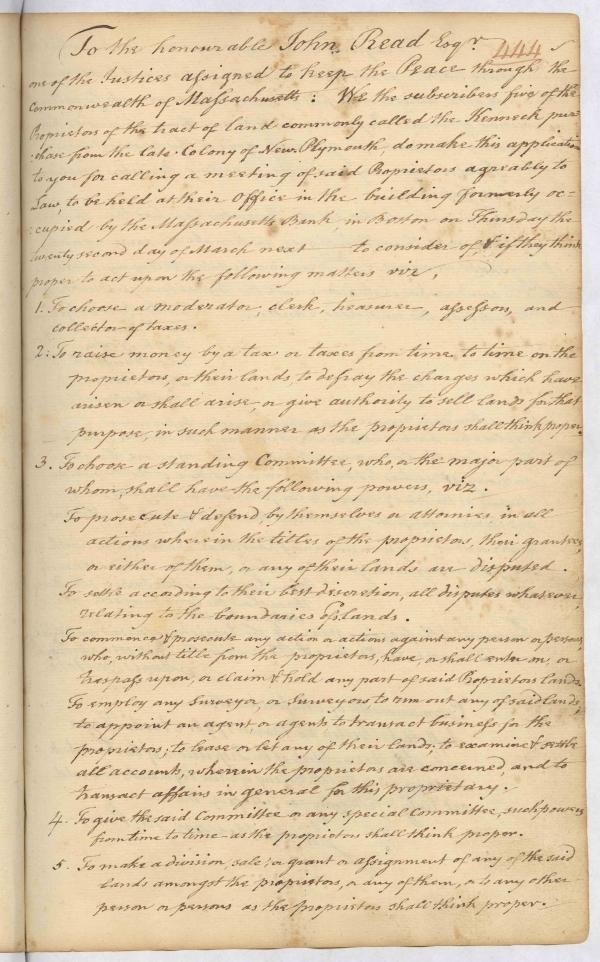 To the honourable John Read Esqr. 444
one of the Justices assigned to keep the Peace through the
Commonwealth of Massachusetts: We the subscribers five of the
Proprietors of the tract of land commonly called the Kenneck pur=
=chase from the late Colony of New Plymouth, do make this application
to you for calling a meeting of said Proprietors agreably to
Law, to be held at their Office in the building formerly oc=
=cupied by the Massachusetts Bank in Boston on Thursday the
twenty second day of March next to consider of, & if they think
proper to act upon the following matters viz,
1. To choose a moderator, clerk, treasurer, assessors, and
collector of taxes.
2: To raise money by a tax or taxes from time to time on the
proprietors, or their lands to defray the charges which have
arisen or shall arise, or give authority to sell lands for that
purpose, in such manner as the proprietors shall think proper.
3. To choose a standing Committee, who, or the major part of
whom, shall have the following powers, viz.
To prosecute & defend, by themselves or attornies, in all
actions wherein the titles of the proprietors, their grantees,
or either of them, or any of their lands are disputed.
To settle according to their best discretion, all disputes whatsoever,
relating to the boundaries of lands.
To commence & prosecute any action or actions against any person or persons,
who, without title from the proprietors, have, or shall enter on, or
trespass upon, or claim & hold any part of said Proprietors lands.
To employ any Surveyor, or Surveyors to run out any of said lands,
to appoint an agent, or agents to transact business for the
proprietors; to lease or let any of their lands, to examine & settle
all accounts, wherein the proprietors are concerned, and to
transact affairs in general for this proprietary.
4. To give the said Committee or any special Committee, such powers
from time to time as the proprietors shall think proper.
5. To make a division, sale, or grant or assignment of any of the said
lands amongst the proprietors, or any of them, or to any other
person or persons as the proprietors shall think proper.